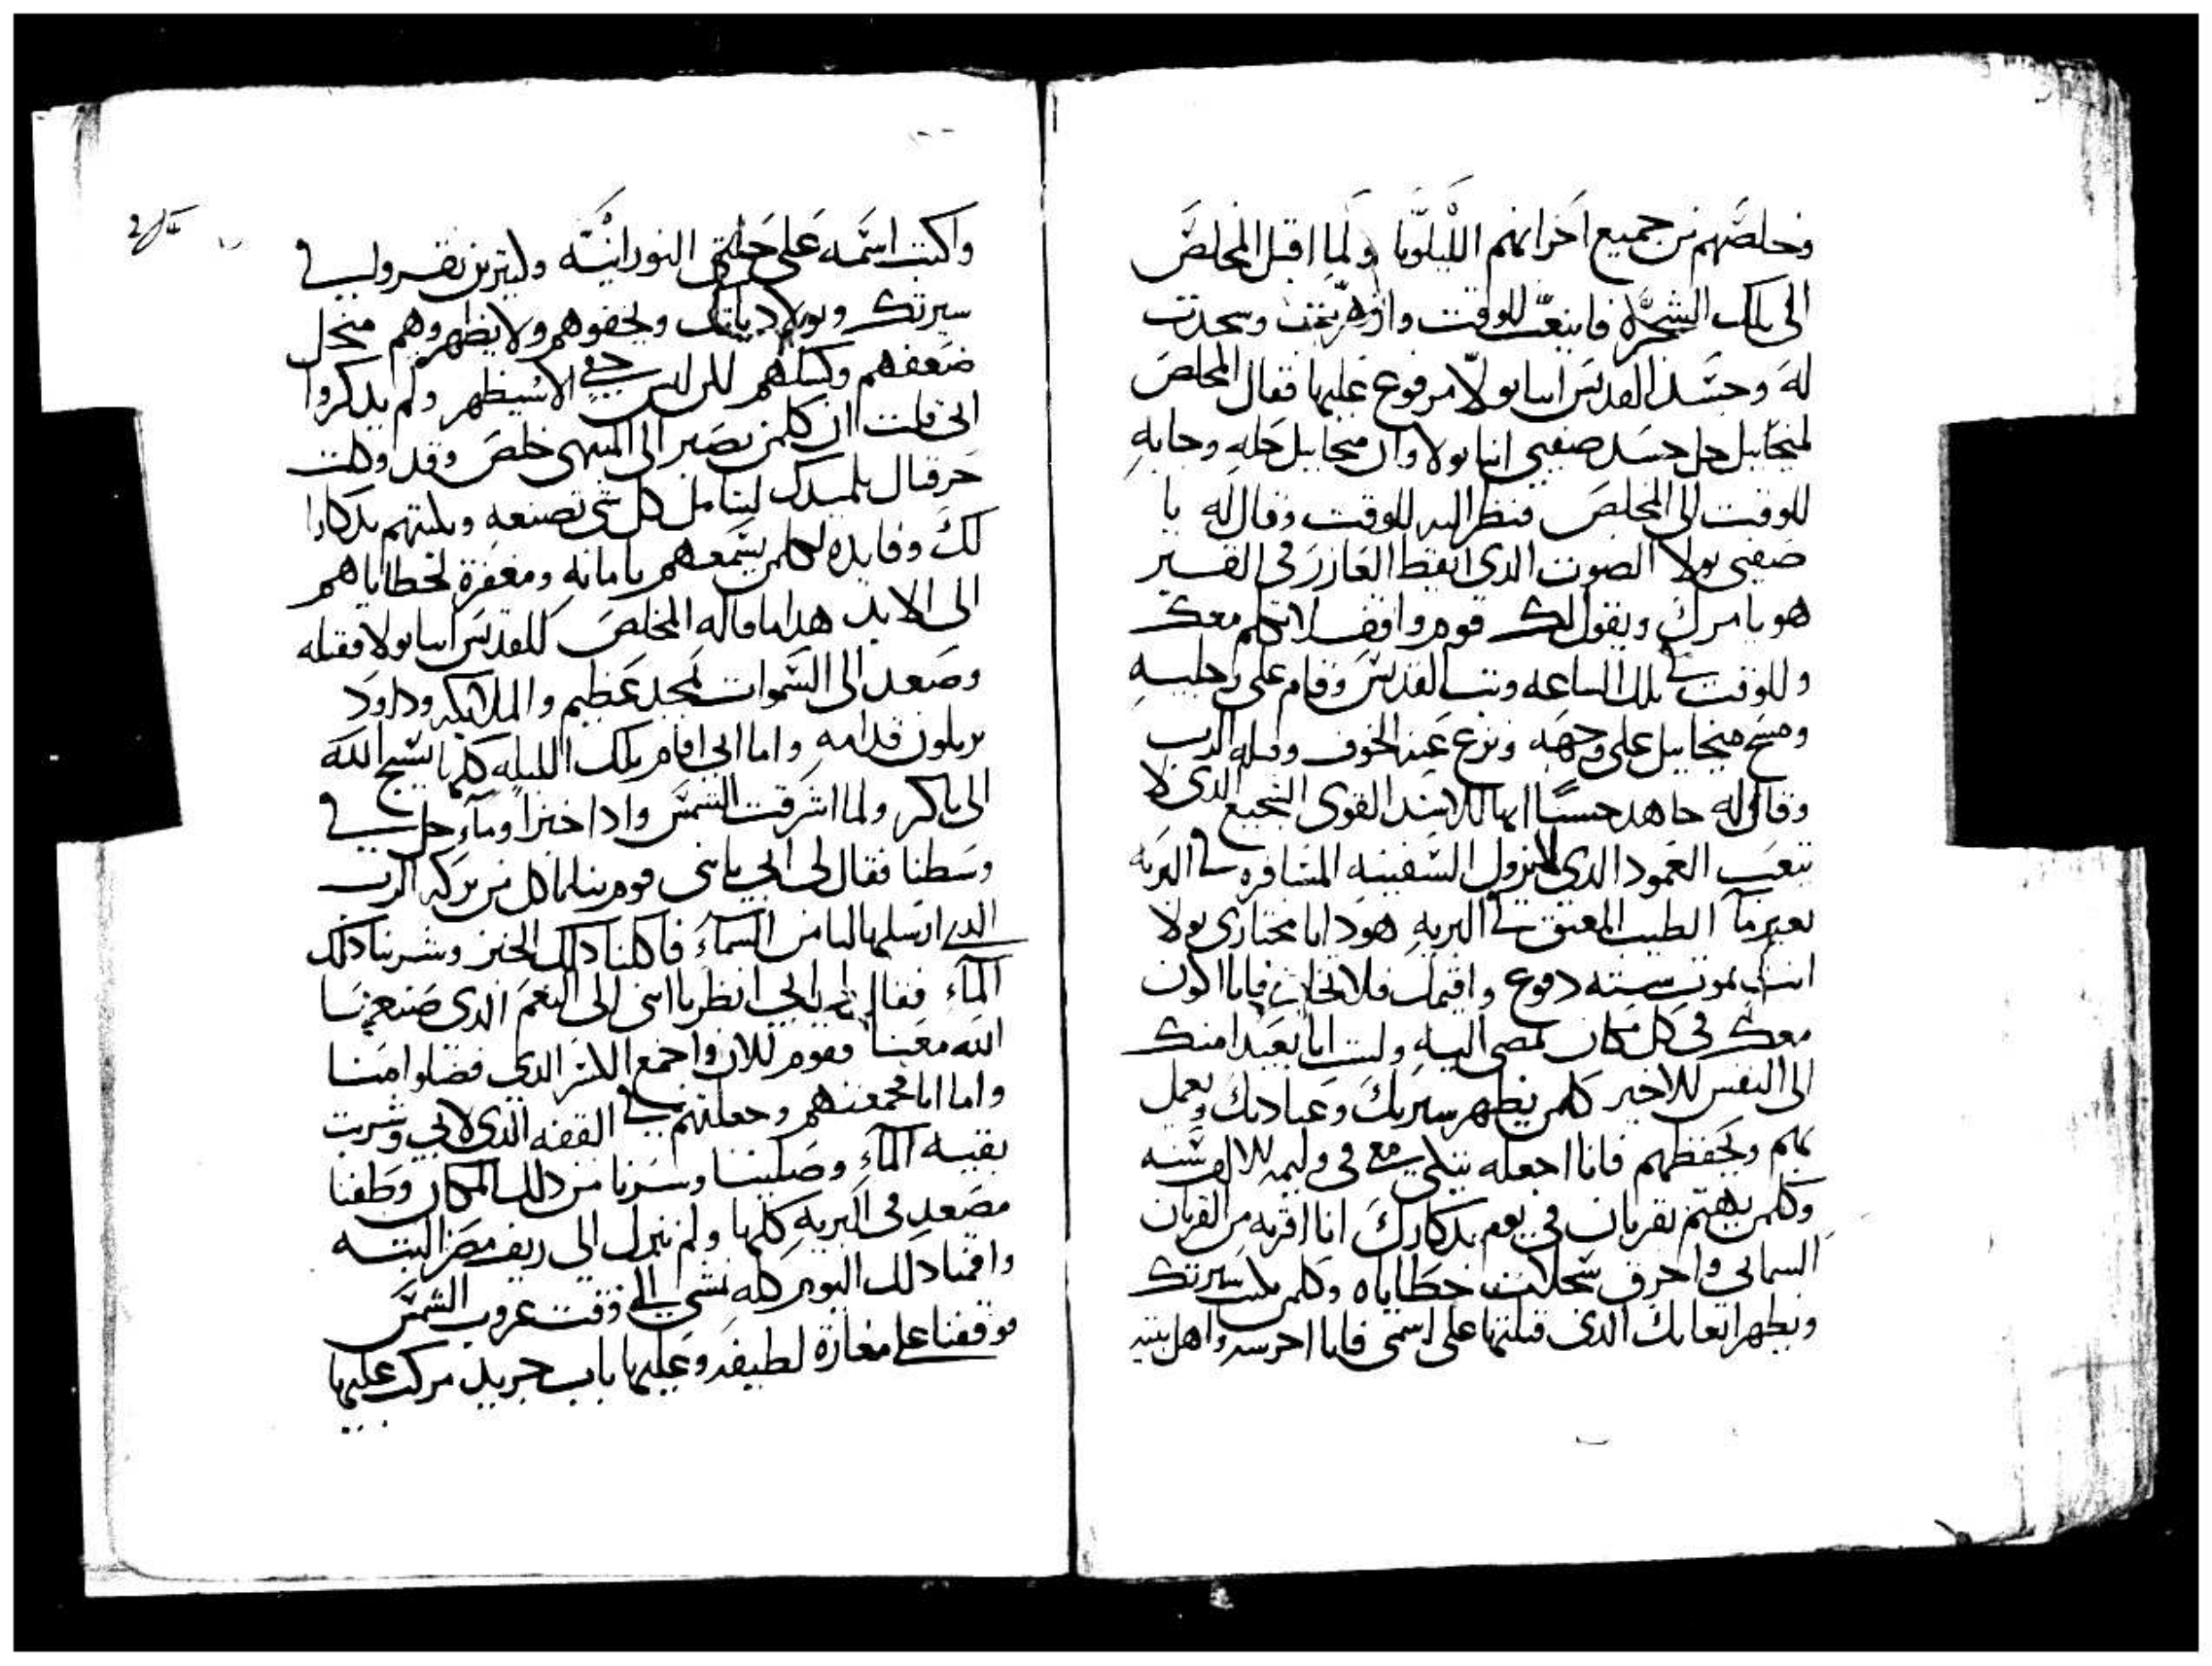 وخلصهم من جميع احزانهم الليلويا ولما اقبل المخلص
الى تلك الشجره فاينعت للوقت وازهرت وسجدت
له وجسد القديس انبا بولا مرفوع عليها فقال المخلص
لميخاييل حل جسد صفيي انبا بولا وان ميخاييل حله وجابه
للوقت الى المخلص فنظر اليه للوقت وقال له يا
صفيي بولا الصوت الذي ايقظ العازر في القبر
هو يامرك ويقول لك قوم واقف لاتكلم معك
وللوقت في تلك الساعه وتب القديس وقام على رجليه
ومسح ميخاييل على وجهه ونزع عنه الخوف وقبله الرب
وقال له جاهد حسنًا ايها الاسد القوي الشجيع الذي لا
يتعب العمود الذي لايزول السفينه المسافره في البريه
بغير ما الطيب المعبق في البريه هودا يا مختاري بولا
انت تموت سته دفوع واقيمك فلا تخاف فانا اكون
معك في كل مكان تمضي اليه ولست انا بعيدا منك
الى النفس الاخير كلمن يظهر سيرتك وعبادتك ويعمل
بهم ويحفظهم فانا اجعله يتكي معي في وليمة الالف سنه
وكلمن يهتم بقربان في يوم تذكارك انا اقربه من القربان
السماني واحرق سجلات خطاياه وكلمن يكتب سيرتك
ويظهر اتعابك الذي قبلتها على اسمي فانا احرسه واهل بيته
واكتب اسمه على حلتي النورانيه وليترين تقرو لي في
سيرتك وتولاد ياتك ويخفوهم ولا يظهروهم منجل
ضعفهم وكسلهم للن ليس خفي الا سيظهر ولم يذكروا
اني قلت ان كلمن يصبر الى المنتهى خلص وقد اوكلت
حرقيال تلميدك ليتامل كل شي تصنعه ويكتبهم تدكارا
لك وفايده لكلمن يسمعهم بامانه ومغفرة لخطاياهم
الى الابد هدا ما قاله المخلص للقديس انبا بولا فقبله
وصعد الى السموات بمجد عظيم والملايكه وداود
يرتلون قدامه واما ابي اقام تلك الليله كلها يسبح الله
الى باكر ولما اشرقت الشمس وادا خبزا وماء حل في
وسطنا فقال لي ابي يا بني قوم بنا ناكل من بركه الرب
الدي ارسلها لنا من السماء فاكلنا دلك الخبز وشربنا دلك
الماء فقال لي ابي انظر يا ابني الى النعم الذي صنعها
الله معنا فقوم الان واجمع الكسر الدي فضلوا منا
واما انا فجمعتهم وجعلتهم في القفه الذي لابي وشربت
بقيه الماء وصلينا وسرنا من دلك المكان وطفنا
مصعد في البريه كلها ولم ننزل الى ريف مصر البته
واقمنا دلك اليوم كله نمشي الى وقت غروب الشمس
فوقفنا على مغارة لطيفه وعليها باب جريد مركب عليها